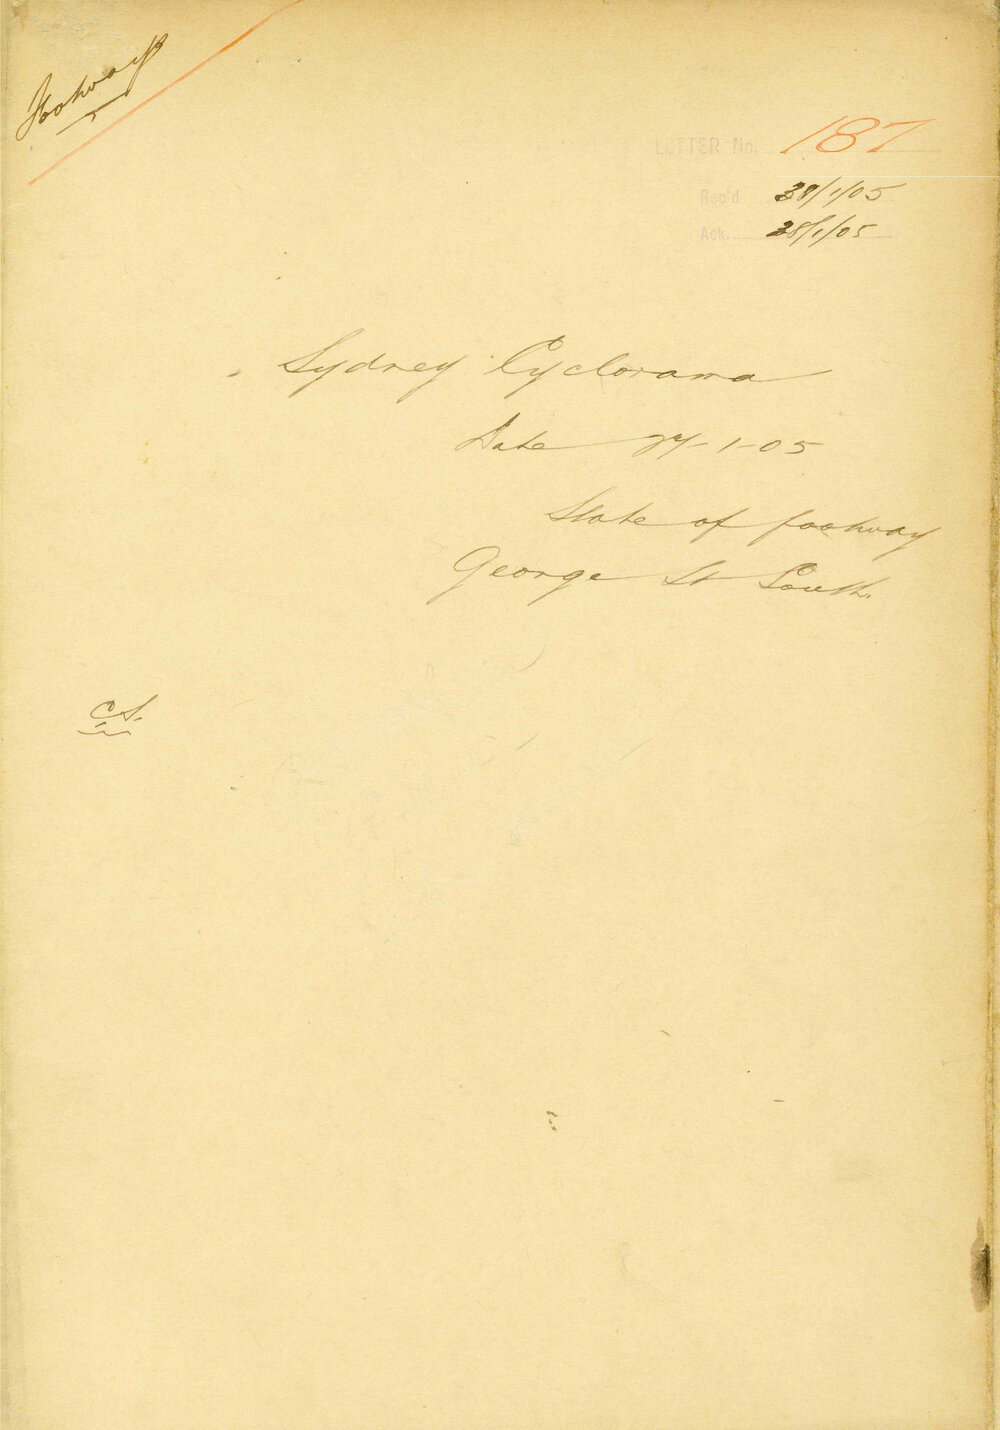 Footway
LETTER No. 187
Rec'd 28/1/05
Ack. 28/1/05
Sydney Cyclorama
Date 27-1-05
State of footway
George St South.
CS.